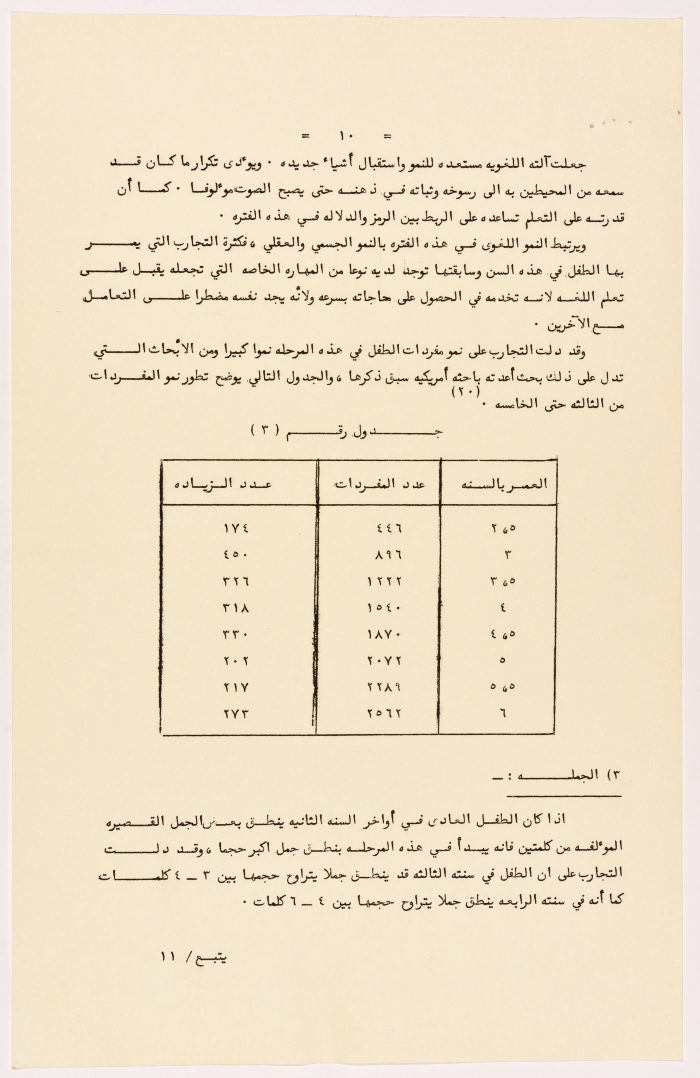 = ١٠ =
جعلت آلته اللغويه مستعده للنمو واستقبال أشياء جديده . ويؤدى تكرار ما كان قد
سمعه من المحيطين به الى رسوخه وثباته في ذهنه حتى يصبح الصوت مؤلوفا . كما أن
قدرته على التعلم تساعده على الربط بين الرمز والدلاله في هذه الفتره .
ويرتبط النمو اللغوى في هذه الفتره بالنمو الجسمي والعقلي ، فكثرة التجارب التي يمر
بها الطفل في هذه السن وسابقتها توجد لديه نوعا من المهاره الخاصه التي تجعله يقبل على
تعلم اللغه لانه تخدمه في الحصول على حاجاته بسرعه ولأنه يجد نفسه مضطرا على التعامل
مع الآخرين .
وقد دلت التجارب على نمو مفردات الطفل في هذه المرحله نموا كبيرا ومن الأبحاث التي
تدل على ذلك بحث أعدته باحثه أمريكيه سبق ذكرها ، والجدول التالي يوضح تطور نمو المفردات
من الثالثه حتى الخامسه . (٢٠)
جدول رقم ( ٣ )
العمر بالسنه عدد المفردات عدد الزياده
٢،٥ ٤٤٦ ١٧٤
٣ ٨٩٦ ٤٥٠
٣،٥ ١٢٢٢ ٣٢٦
٤ ١٥٤٠ ٣١٨
٤،٥ ١٨٧٠ ٣٣٠
٥ ٢٠٧٢ ٢٠٢
٥،٥ ٢٢٨٩ ٢١٧
٦ ٢٥٦٢ ٢٧٣
٣) الجمله : ـ
اذا كان الطفل العادى في أواخر السنه الثانيه ينطق بعض الجمل القصيره
المؤلفه من كلمتين فانه يبدأ في هذه المرحله بنطق جمل اكبر حجما ، وقد دلت
التجارب على ان الطفل في سنته الثالثه قد ينطق جملا يتراوح حجمها بين ٣ ـ ٤ كلمات
كما أنه في سنته الرابعه ينطق جملا يتراوح حجمها بين ٤ ـ ٦ كلمات .
يتبع / ١١